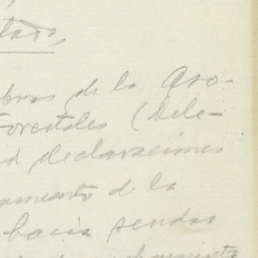 bros de la Aso-
Forestales (Dele-
d declaraciones
amiento de la
hacia sendos